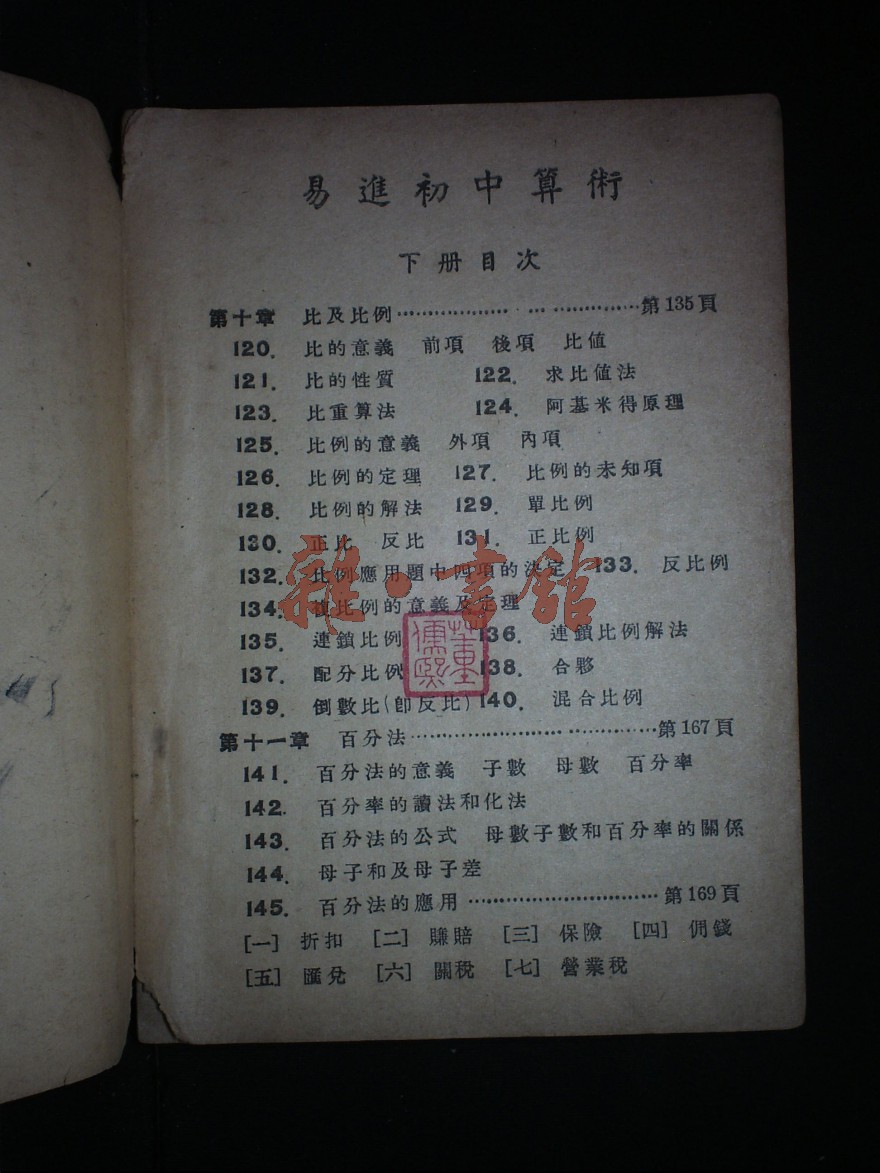 易進初中算術
下册目次
第十章 比及比例………………第135頁
120. 比的意義 前項 後項 比值
121. 比的性質 122. 求比值法
123. 比重算法 124. 阿基米得原理
125. 比例的意義 外項 內項
126. 比例的定理 127. 比例的未知項
128. 比例的解法 129. 單比例
130. 正比 反比 131. 正比例
132. 比例應用題中四項的決定 133. 反比例
134. 複比例的意義及定理
135. 連鎖比例 136. 連鎖比例解法
137. 配分比例 138. 合夥
139. 倒數比(卽反比) 140. 混合比例
第十一章 百分法………………第167頁
141. 百分法的意義 子數 母數 百分率
142. 百分率的讀法和化法
143. 百分法的公式 母數子數和百分率的關係
144. 母子和及母子差
145. 百分法的應用………………第169頁
[一] 折扣 [二] 賺賠 [三] 保險 [四] 佣錢
[五] 匯兌 [六] 關稅 [七] 營業稅
雜·書館